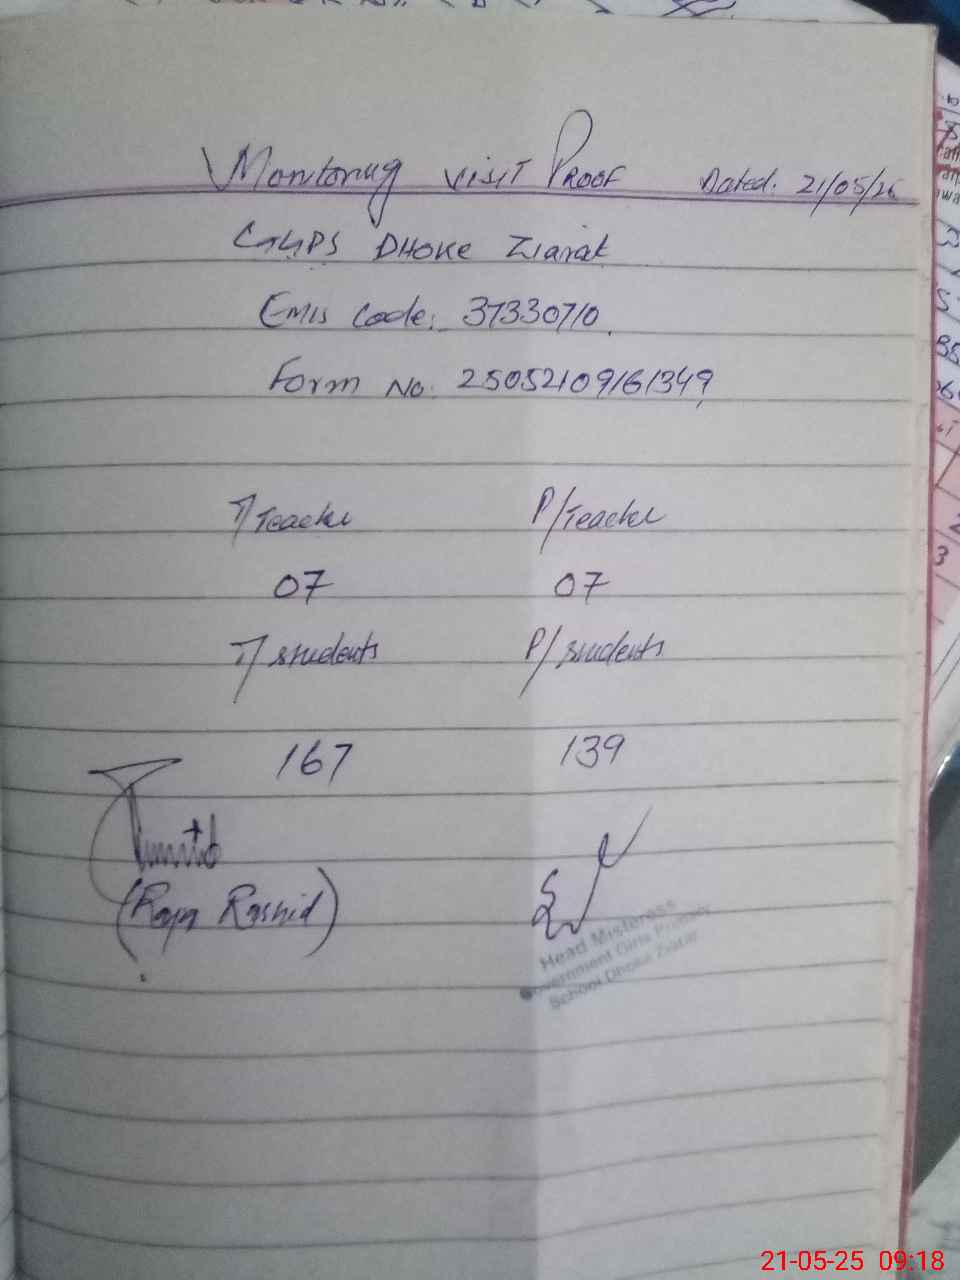 Monitoring Visit Proof Dated: 21/05/25
GGPS DHOKE Ziarat
Emis Code: 37330710
Form No: 25052109161349
T/Teacher P/Teacher
07 07
T/students P/students
167 139
(Raja Rashid)
Head Misteress
Government Girls Primary
School Dhoke Ziarat
21-05-25 09:18